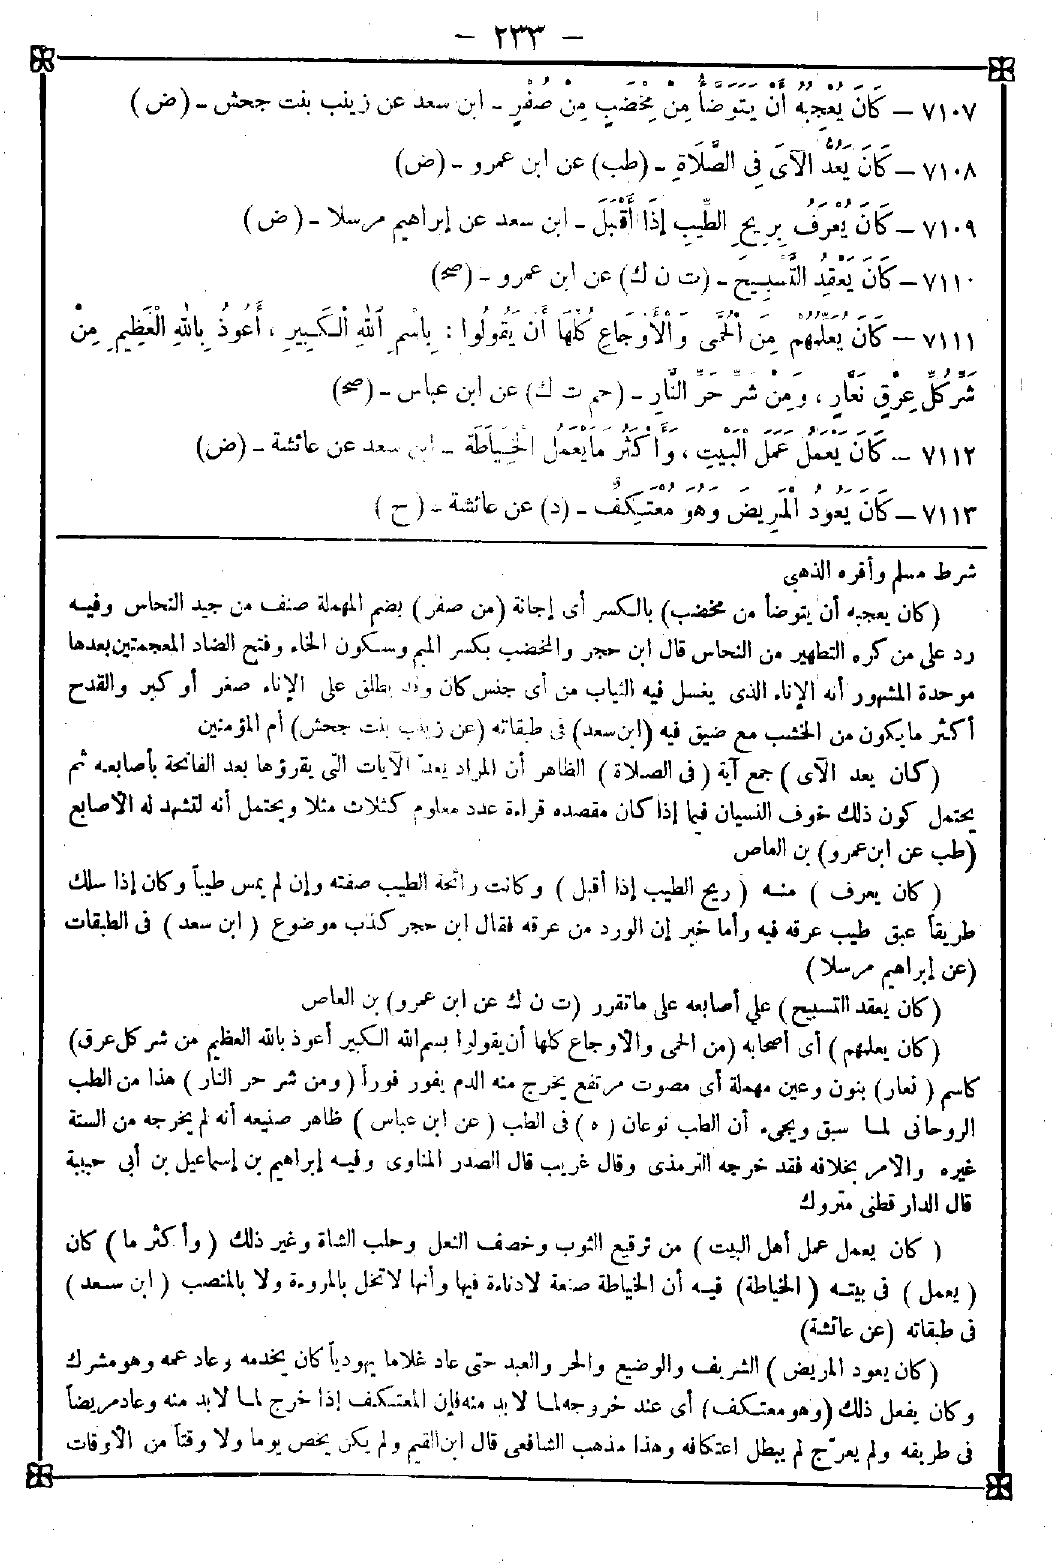 - ٢٣٣ -
٧١٠٧ – كَانَ يُعْجِبُهُ أَنْ يَتَوَضَّأَ مِنْ مِخْضَبٍ مِنْ صُفْرٍ - ابن سعد عن زينب بنت جحش - (ض)
٧١٠٨ – كَانَ يَعُدُّ الْآىَ فِى الصَّلَاةِ - (طب) عن ابن عمرو - (ض)
٧١٠٩ – كَانَ يُعْرَفُ بِرِيحِ الطِّيبِ إِذَا أَقْبَلَ - ابن سعد عن إبراهيم مرسلا - (ض)
٧١١٠ – كَانَ يَعْقِدُ التَّسْبِيحَ - (ت ن ك) عن ابن عمرو - (صح)
٧١١١ – كَانَ يُعَلِّمُهُمْ مِنَ الْحُمَّى وَالْأَوْجَاعِ كُلِّهَا أَنْ يَقُولُوا : بِاسْمِ اللهِ الْكَبِيرِ ، أَعُوذُ بِاللهِ الْعَظِيمِ مِنْ
شَرِّ كُلِّ عِرْقٍ نَعَّارٍ ، وَمِنْ شَرِّ حَرِّ النَّارِ - (حم ت ك) عن ابن عباس - (صح)
٧١١٢ – كَانَ يَعْمَلُ عَمَلَ الْبَيْتِ ، وَأَكْثَرُ مَا يَعْمَلُ الْخِيَاطَةَ - ابن سعد عن عائشة - (ض)
٧١١٣ – كَانَ يَعُودُ الْمَرِيضَ وَهُوَ مُعْتَكِفٌ - (د) عن عائشة - (ح)
شرط مسلم وأقره الذهبي
(كان يعجبه أن يتوضأ من مخضب) بالكسر أى إجانة (من صفر) بضم المهملة صنف من جيد النحاس وفيه
رد على من كره التطهير من النحاس قال ابن حجر والمخضب بكسر الميم وسكون الخاء وفتح الضاد المعجمتين بعدها
موحدة المشهور أنه الإناء الذى يغسل فيه الثياب من أى جنس كان وقد يطلق على الإناء صغر أو كبر والقدح
أكثر ما يكون من الخشب مع ضيق فيه (ابن سعد) فى طبقاته (عن زينب بنت جحش) أم المؤمنين
(كان يعد الآى) جمع آية (فى الصلاة) الظاهر أن المراد يعدّ الآيات التى يقرؤها بعد الفاتحة بأصابعه ثم
يحتمل كون ذلك خوف النسيان فيما إذا كان مقصده قراءة عدد معلوم كثلاث مثلا ويحتمل أنه لتشهد له الأصابع
(طب عن ابن عمرو) بن العاص
(كان يعرف) منه (ريح الطيب إذا أقبل) وكانت رائحة الطيب صفته وإن لم يمس طيباً وكان إذا سلك
طريقاً عبق طيب عرقه فيه وأما خبر إن الورد من عرقه فقال ابن حجر كذب موضوع (ابن سعد) فى الطبقات
(عن إبراهيم مرسلا)
(كان يعقد التسبيح) علي أصابعه على ما تقرر (ت ن ك عن ابن عمرو) بن العاص
(كان يعلمهم) أى أصحابه (من الحمى والأوجاع كلها أن يقولوا بسم الله الكبير أعوذ بالله العظيم من شر كل عرق)
كاسم (نعار) بنون وعين مهملة أى مصوت مرتفع يخرج منه الدم يفور فوراً (ومن شر حر النار) هذا من الطب
الروحانى لما سبق ويجىء أن الطب نوعان (ه) فى الطب (عن ابن عباس) ظاهر صنيعه أنه لم يخرجه من الستة
غيره والأمر بخلافه فقد خرجه الترمذى وقال غريب قال الصدر المناوى وفيه إبراهيم بن إسماعيل بن أبى حبيبة
قال الدار قطنى متروك
(كان يعمل عمل أهل البيت) من ترقيع الثوب وخصف النعل وحلب الشاة وغير ذلك (وأكثر ما) كان
(يعمل) فى بيته (الخياطة) فيه أن الخياطة صنعة لا دناءة فيها وأنها لا تخل بالمروءة ولا بالمنصب (ابن سعد)
فى طبقاته (عن عائشة)
(كان يعود المريض) الشريف والوضيع والحر والعبد حتى عاد غلاما يهودياً كان يخدمه وعاد عمه وهو مشرك
وكان يفعل ذلك (وهو معتكف) أى عند خروجه لما لا بد منه فإن المعتكف إذا خرج لما لا بد منه وعاد مريضاً
فى طريقه ولم يعرّج لم يبطل اعتكافه وهذا مذهب الشافعى قال ابن القيم ولم يكن يخص يوما ولا وقتاً من الأوقات